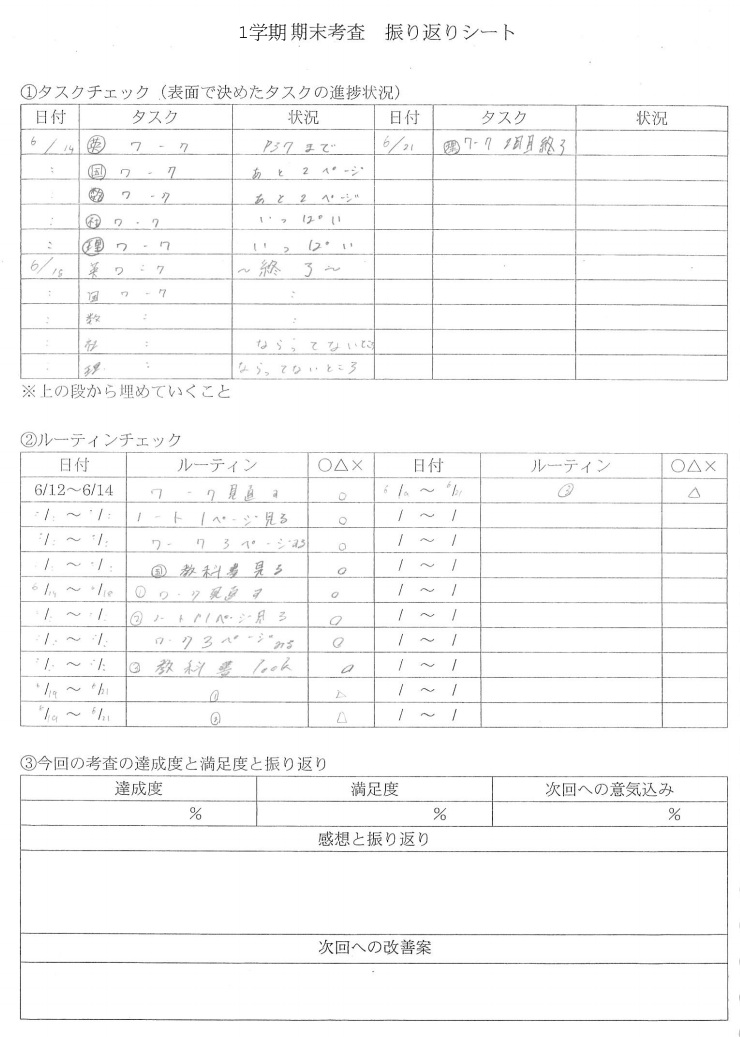 1学期 期末考査　振り返りシート
①タスクチェック（表面で決めたタスクの進捗状況）
日付 タスク 状況 日付 タスク 状況
6/14 ㊥ワーク P37まで 6/21 ㊥ワーク 2周目終了
: ㊥ワーク あと2ページ
: ワーク あと2ページ
: ワーク いっぱい
: ワーク いっぱい
6/18 英ワーク ～終了～
: 国ワーク :
: 数 : :
: 社 : ならってないとこ
: 理 : ならってないところ
※上の段から埋めていくこと
②ルーティンチェック
日付 ルーティン ○△× 日付 ルーティン ○△×
6/12～6/14 ワーク見直す ○ 6/19～6/21 ③ △
:/:～:/: ノート1ページ見る ○ /～/
:/:～:/: ワーク3ページ ○ /～/
:/:～:/: 教科書見る ○ /～/
～6/18 ①ワーク見直す ○ /～/
/～/ ②ノート1ページ見る ○ /～/
:/:～:/: ワーク3ページ ○ /～/
:/:～:/: ③教科書look ○ /～/
6/19～6/21 ① △ /～/
6/19～6/21 ② △ /～/
③今回の考査の達成度と満足度と振り返り
達成度 満足度 次回への意気込み
% % %
感想と振り返り
次回への改善案